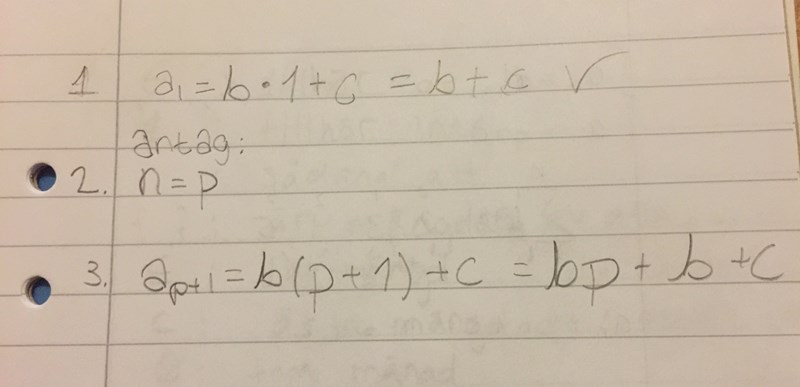 1 a₁ = b·1+c = b+c ✓
antag:
2. n=p
3. aₚ₊₁ = b(p+1)+c = bp+b+c